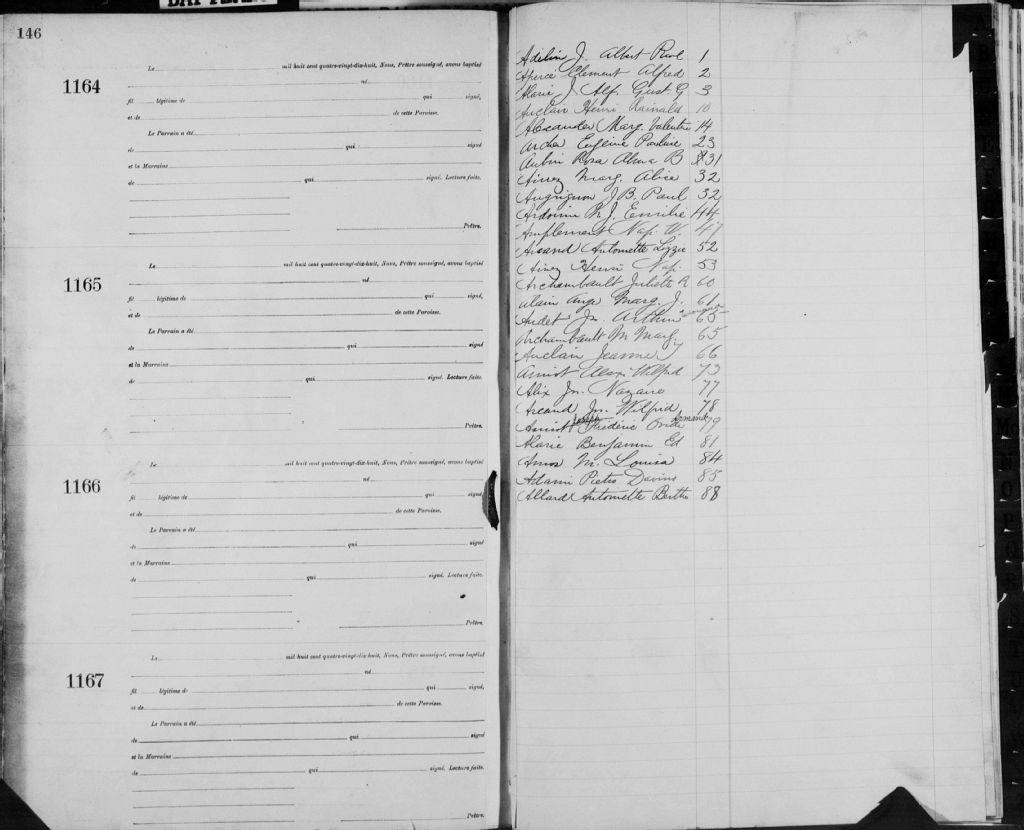 146
1164
Le mil huit cent quatre-vingt-dix-huit, Nous, Prêtre soussigné, avons baptisé
né
fil légitime de qui signé,
et de de cette Paroisse.
Le Parrain a été
de qui signé
et la Marraine
de qui signé. Lecture faite.
Prêtre.
1165
Le mil huit cent quatre-vingt-dix-huit, Nous, Prêtre soussigné, avons baptisé
né
fil légitime de qui signé,
et de de cette Paroisse.
Le Parrain a été
de qui signé
et la Marraine
de qui signé. Lecture faite.
Prêtre.
1166
Le mil huit cent quatre-vingt-dix-huit, Nous, Prêtre soussigné, avons baptisé
né
fil légitime de qui signé,
et de de cette Paroisse.
Le Parrain a été
de qui signé
et la Marraine
de qui signé. Lecture faite.
Prêtre.
1167
Le mil huit cent quatre-vingt-dix-huit, Nous, Prêtre soussigné, avons baptisé
né
fil légitime de qui signé,
et de de cette Paroisse.
Le Parrain a été
de qui signé
et la Marraine
de qui signé. Lecture faite.
Prêtre.
J. Albert 1
Clement Alfred 2
Alarie J. Alf. Gust. G 3
Auclair Henri Rainald 10
Alexander Marg. Valentine 14
Archer Eugénie Pauline 23
Aubin Rosa Alma B 31
Marg. Alice 32
J. B. Paul 32
M. J. Emilie 44
Amplement Nap. W. 47
Arcand Antoinette Lizzie 52
Henri Nap. 53
Archambault Juliette R 60
Alain Ange Marg. J. 61
Audet Jos. Arthur 63
Archambault M Marg 65
Auclair Jeanne 66
Amiot Alex. Wilfrid 73
Alix Jos. Nazaire 77
Arcand Jos. Wilfrid 78
Amiot Joseph Frédéric Ovide Armand 79
Alarie Benjamin Ed 81
Amos M. Louisa 84
Adami Pietro 85
Allard Antoinette Bertha 88